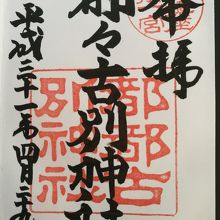 奉拝
都々古別神社
平成三十一年四月二十九
都都古
別神社